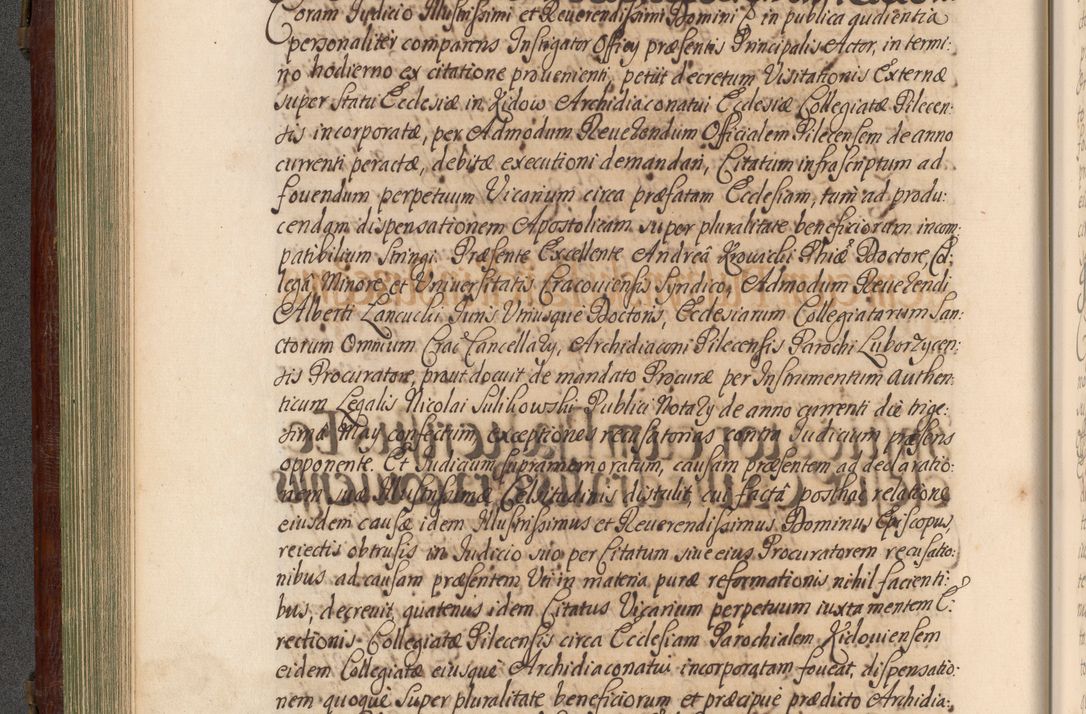 Coram Judicio Illustrissimi et Reuerendissimi Domini in publica audientia
personaliter comparens Instigator Officy præsentis Principalis Actor, in termi:
no hodierno ex citatione prouenienti, petiit decretum Visitationis Externæ
super statu Ecclesiæ in Zidow Archidiaconatui Ecclesiæ Collegiatæ Pilecen:
sis incorporatæ, per Admodum Reuerendum Officialem Pilecensem de anno
currenti peractæ, debitæ executioni demandari, Citatum infrascriptum ad
fouendum perpetuum Vicarium circa præfatam Ecclesiam, tum ad produ:
cendam dispensationem Apostolicam super pluralitate beneficiorum incom:
patibilium stringi. Præsente Excellente Andreâ Krowacki Phiæ Doctore, Col:
legâ Minore et Uniuersitatis Cracouiensis Syndico, Admodum Reuerendi
Alberti Lancucki Juris Utriusque Doctoris, Ecclesiarum Collegiatarum San:
ctorum Omnium Crac: Cancellary, Archidiaconi Pilecensis Parochi Luborzycen:
sis Procuratore, prout docuit de mandato Procuræ per Instrumentum authen:
ticum Legalis Nicolai Sulikowski Publici Notary de anno currenti die trige:
sima May confectum, exceptiones recusatorias contra Judicium præsens
opponente. Et Judicium supramemoratum, causam præsentem ad declaratio:
nem suæ Illustrissimæ Celsitudinis distulit, cui factâ posthac relatione
eiusdem causæ idem Illustrissimus et Reuerendissimus Dominus Episcopus,
reiectis obtrusis in Judicio suo per Citatum siue eius Procuratorem recusatio:
nibus ad causam præsentem, Uti in materia puræ reformationis nihil facienti:
bus, decreuit quatenus idem Citatus Vicarium perpetuum iuxta mentem E:
rectionis Collegiatæ Pilecensis circa Ecclesiam Parochialem Zidouiensem
eidem Collegiatæ eiusque Archidiaconatui incorporatam foueat, dispensatio:
nem quoque super pluralitate beneficiorum et præcipue prædicto Archidia: